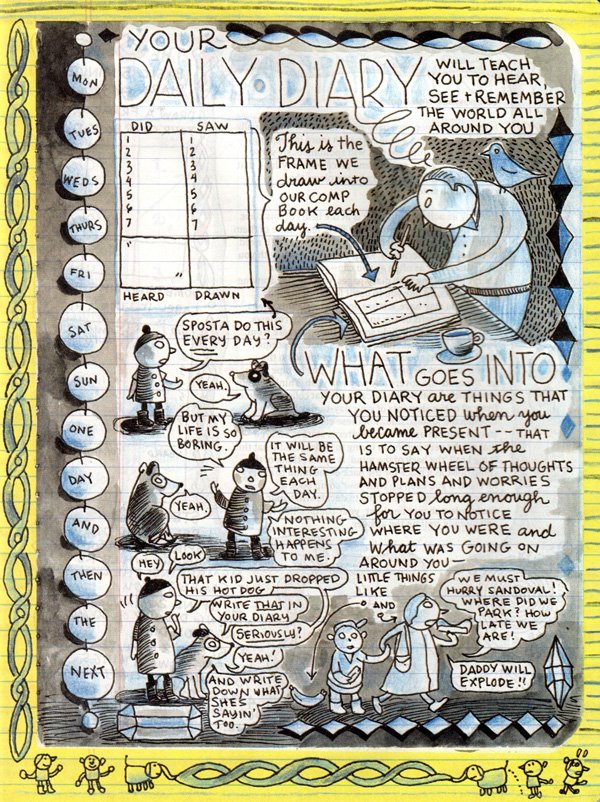 YOUR
DAILY DIARY
WILL TEACH
YOU TO HEAR,
SEE + REMEMBER
THE WORLD ALL
AROUND YOU
MON
TUES
WEDS
THURS
FRI
SAT
SUN
ONE
DAY
AND
THEN
THE
NEXT
DID SAW
1 1
2 2
3 3
4 4
5 5
6 6
7 7
"
HEARD DRAWN
This is the
FRAME WE
draw into
OUR COMP
BOOK each
day.
SPOSTA DO THIS
EVERY DAY?
YEAH.
BUT MY
LIFE IS SO
BORING.
IT WILL BE
THE SAME
THING
EACH
DAY.
YEAH.
NOTHING
INTERESTING
HAPPENS
TO ME.
WHAT GOES INTO
YOUR DIARY are THINGS THAT
YOU NOTICED when you
became PRESENT -- THAT
IS TO SAY WHEN the
HAMSTER WHEEL OF THOUGHTS
AND PLANS AND WORRIES
STOPPED long enough
for YOU TO NOTICE
WHERE YOU WERE and
what WAS GOING ON
AROUND YOU—
LITTLE THINGS
LIKE
AND
HEY
LOOK
THAT KID JUST DROPPED
HIS HOT DOG
WRITE THAT IN
YOUR DIARY
SERIOUSLY?
YEAH!
AND WRITE
DOWN WHAT
SHE'S
SAYIN'
TOO.
WE MUST
HURRY SANDOVAL!
WHERE DID WE
PARK? HOW
LATE WE
ARE!
DADDY WILL
EXPLODE!!